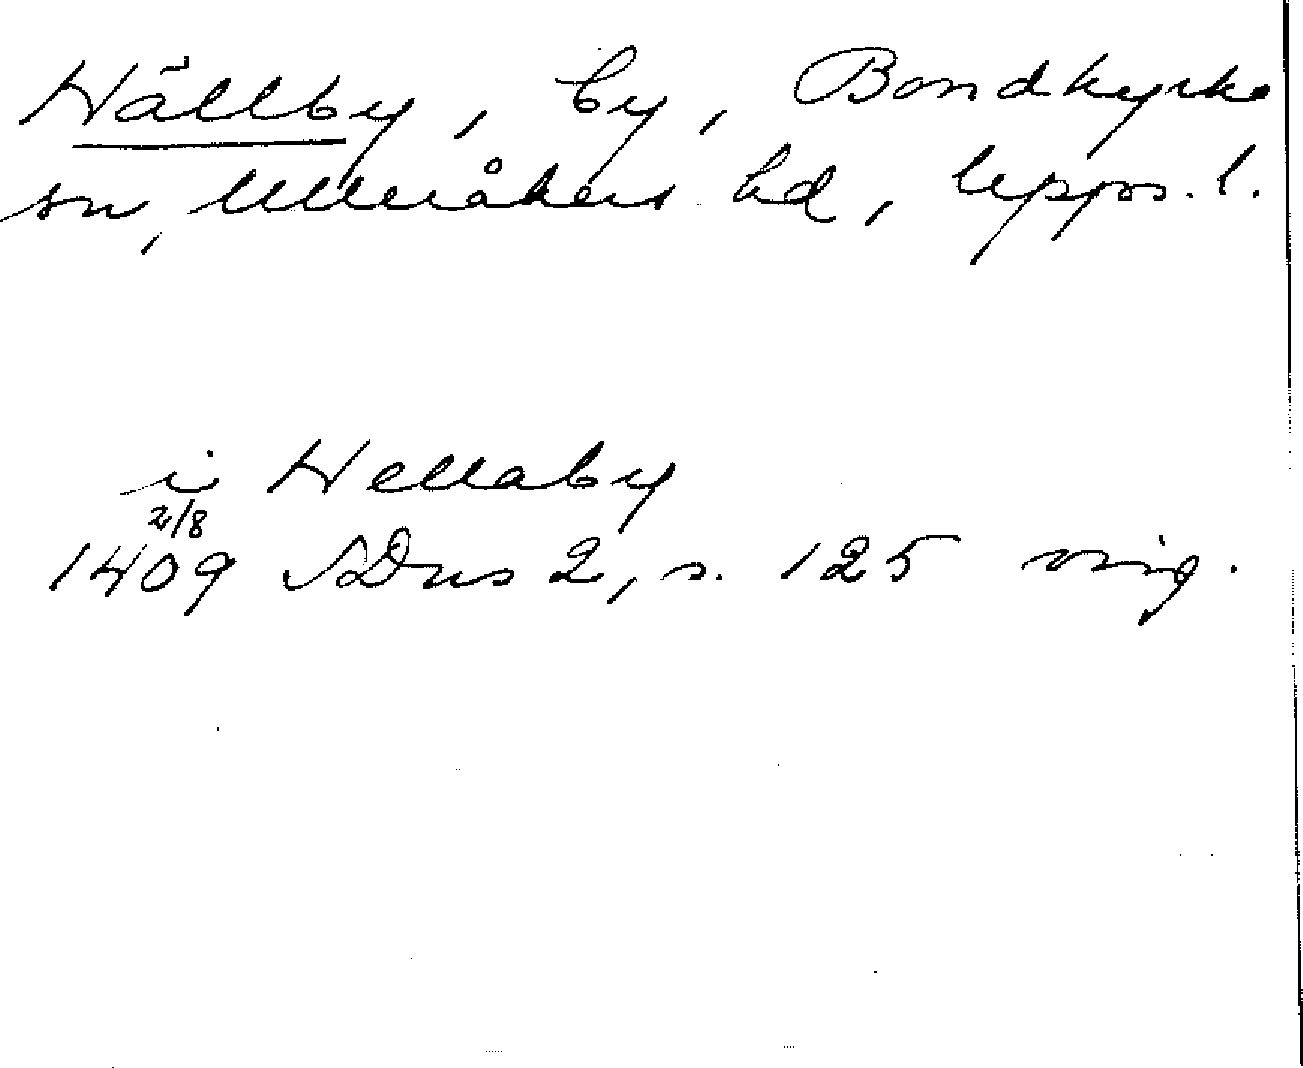 Hällby, by, Bondkyrko
sn, Ulleråkers hd, Upps. l.
i Hellaby
2/8
1409 SDns 2, s. 125 orig.